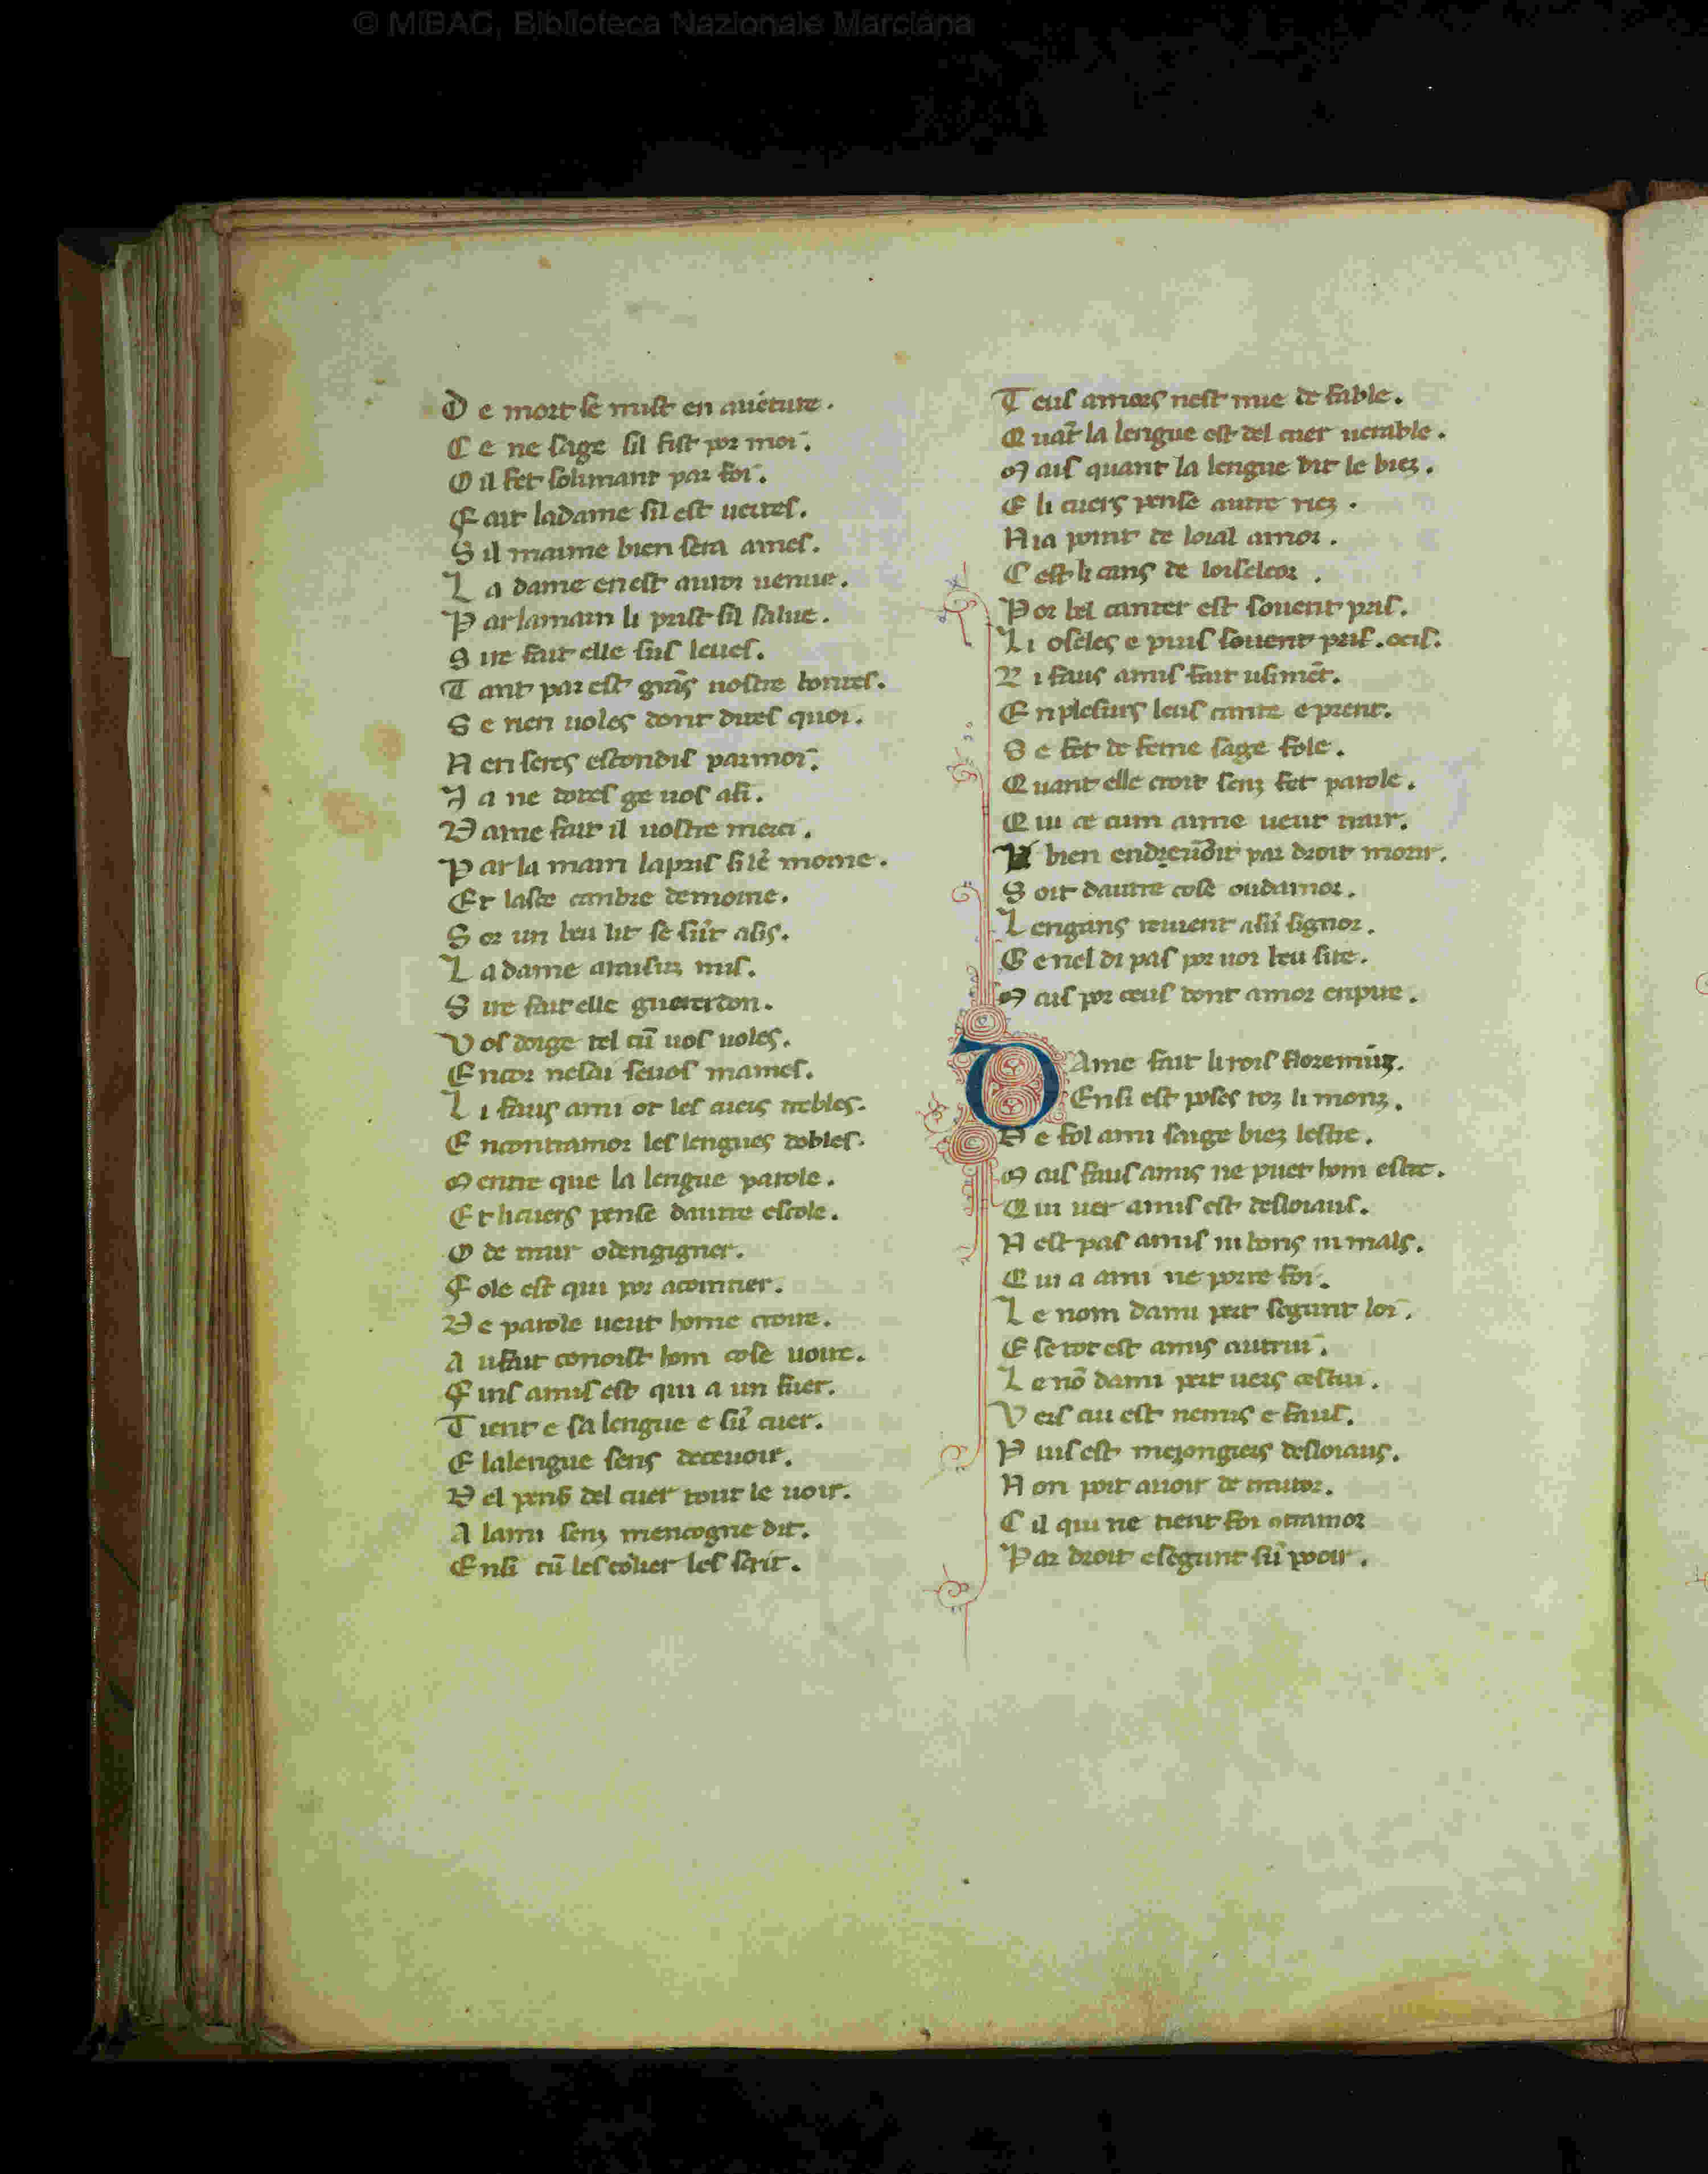 © MiBAC, Biblioteca Nazionale Marciana
D e mort se mist en auēture.
C e ne sage sil fist por moi.
O il fet solimant par foi.
F ait ladame sil est uerites.
S il maime bien sera ames.
L a dame en est autor uenue.
P arlamain li prist sil salue.
S ire fait elle sus leues.
T ant par est grās uostre bontes.
S e rien uoles dont dites quoi.
N en seres escondis parmoi.
J a ne dotes ge uos afi.
D ame fait il uostre merci.
P ar la main lapris
E t laste canbre demoine.
S or un beu lit se sūt asis.
L a dame
S ire fait elle guererdon.
V os doige tel cū uos uoles.
E ncor nesai seuos mames.
L i faus ami ot les cuers trebles.
E ncontramor les lengues dobles.
M entre que la lengue parole.
E t licuers pense dautre escole.
O de trair odengigner.
F ole est qui por acointier.
D e parole ueut home croire.
A ufait conoist hom cose uoire.
F ins amis est qui a un fuer.
T ient e sa lengue e sū cuer.
E lalengue sens deceuoir.
D el pens del cuer tout le uoir.
A lami senz mencogne dit.
E nsi cū les les scrit.
T eus amors nest mie de fable.
Q uāt la lengue est del cuer uerable.
M ais quant la lengue dit le biez.
E li cuers pense autre riez.
N ia point de loial amor.
C est li cans de loiseleor.
P or bel canter est souent pris.
L i oseles e puis souent pris. ocis.
L i faus amis fait usimēt.
E nplesiurs leus cante e prent.
S e fet de feme sage fole.
Q uant elle croit senz fet parole.
Q ui ce cum aime ueut trair.
bien par droit morir.
S oit dautre cose oudamor.
L engans reuient asū signor.
G enel di pas por uor beu sire.
M ais por ceus dont amor enpire.
D Ame fait lirois floremūz.
Ensi est poses toz li monz.
D e fol ami saige biez lestre.
M ais faus amis ne puet hom estre.
Q ui uer amis est desloiaus.
N est pas amis ni bons ni mals.
Q ui a ami ne porte foi.
L e nom dami pert segunt loi.
E se tot est amis autrui.
L e nō dami pert uers cestui.
V ers cui est nemis e faus.
P uis est mezongiers desloiaus.
N on poit auoir de traitor.
C il qui ne tient foi atramor
P ar droit esegunt sū pooir.